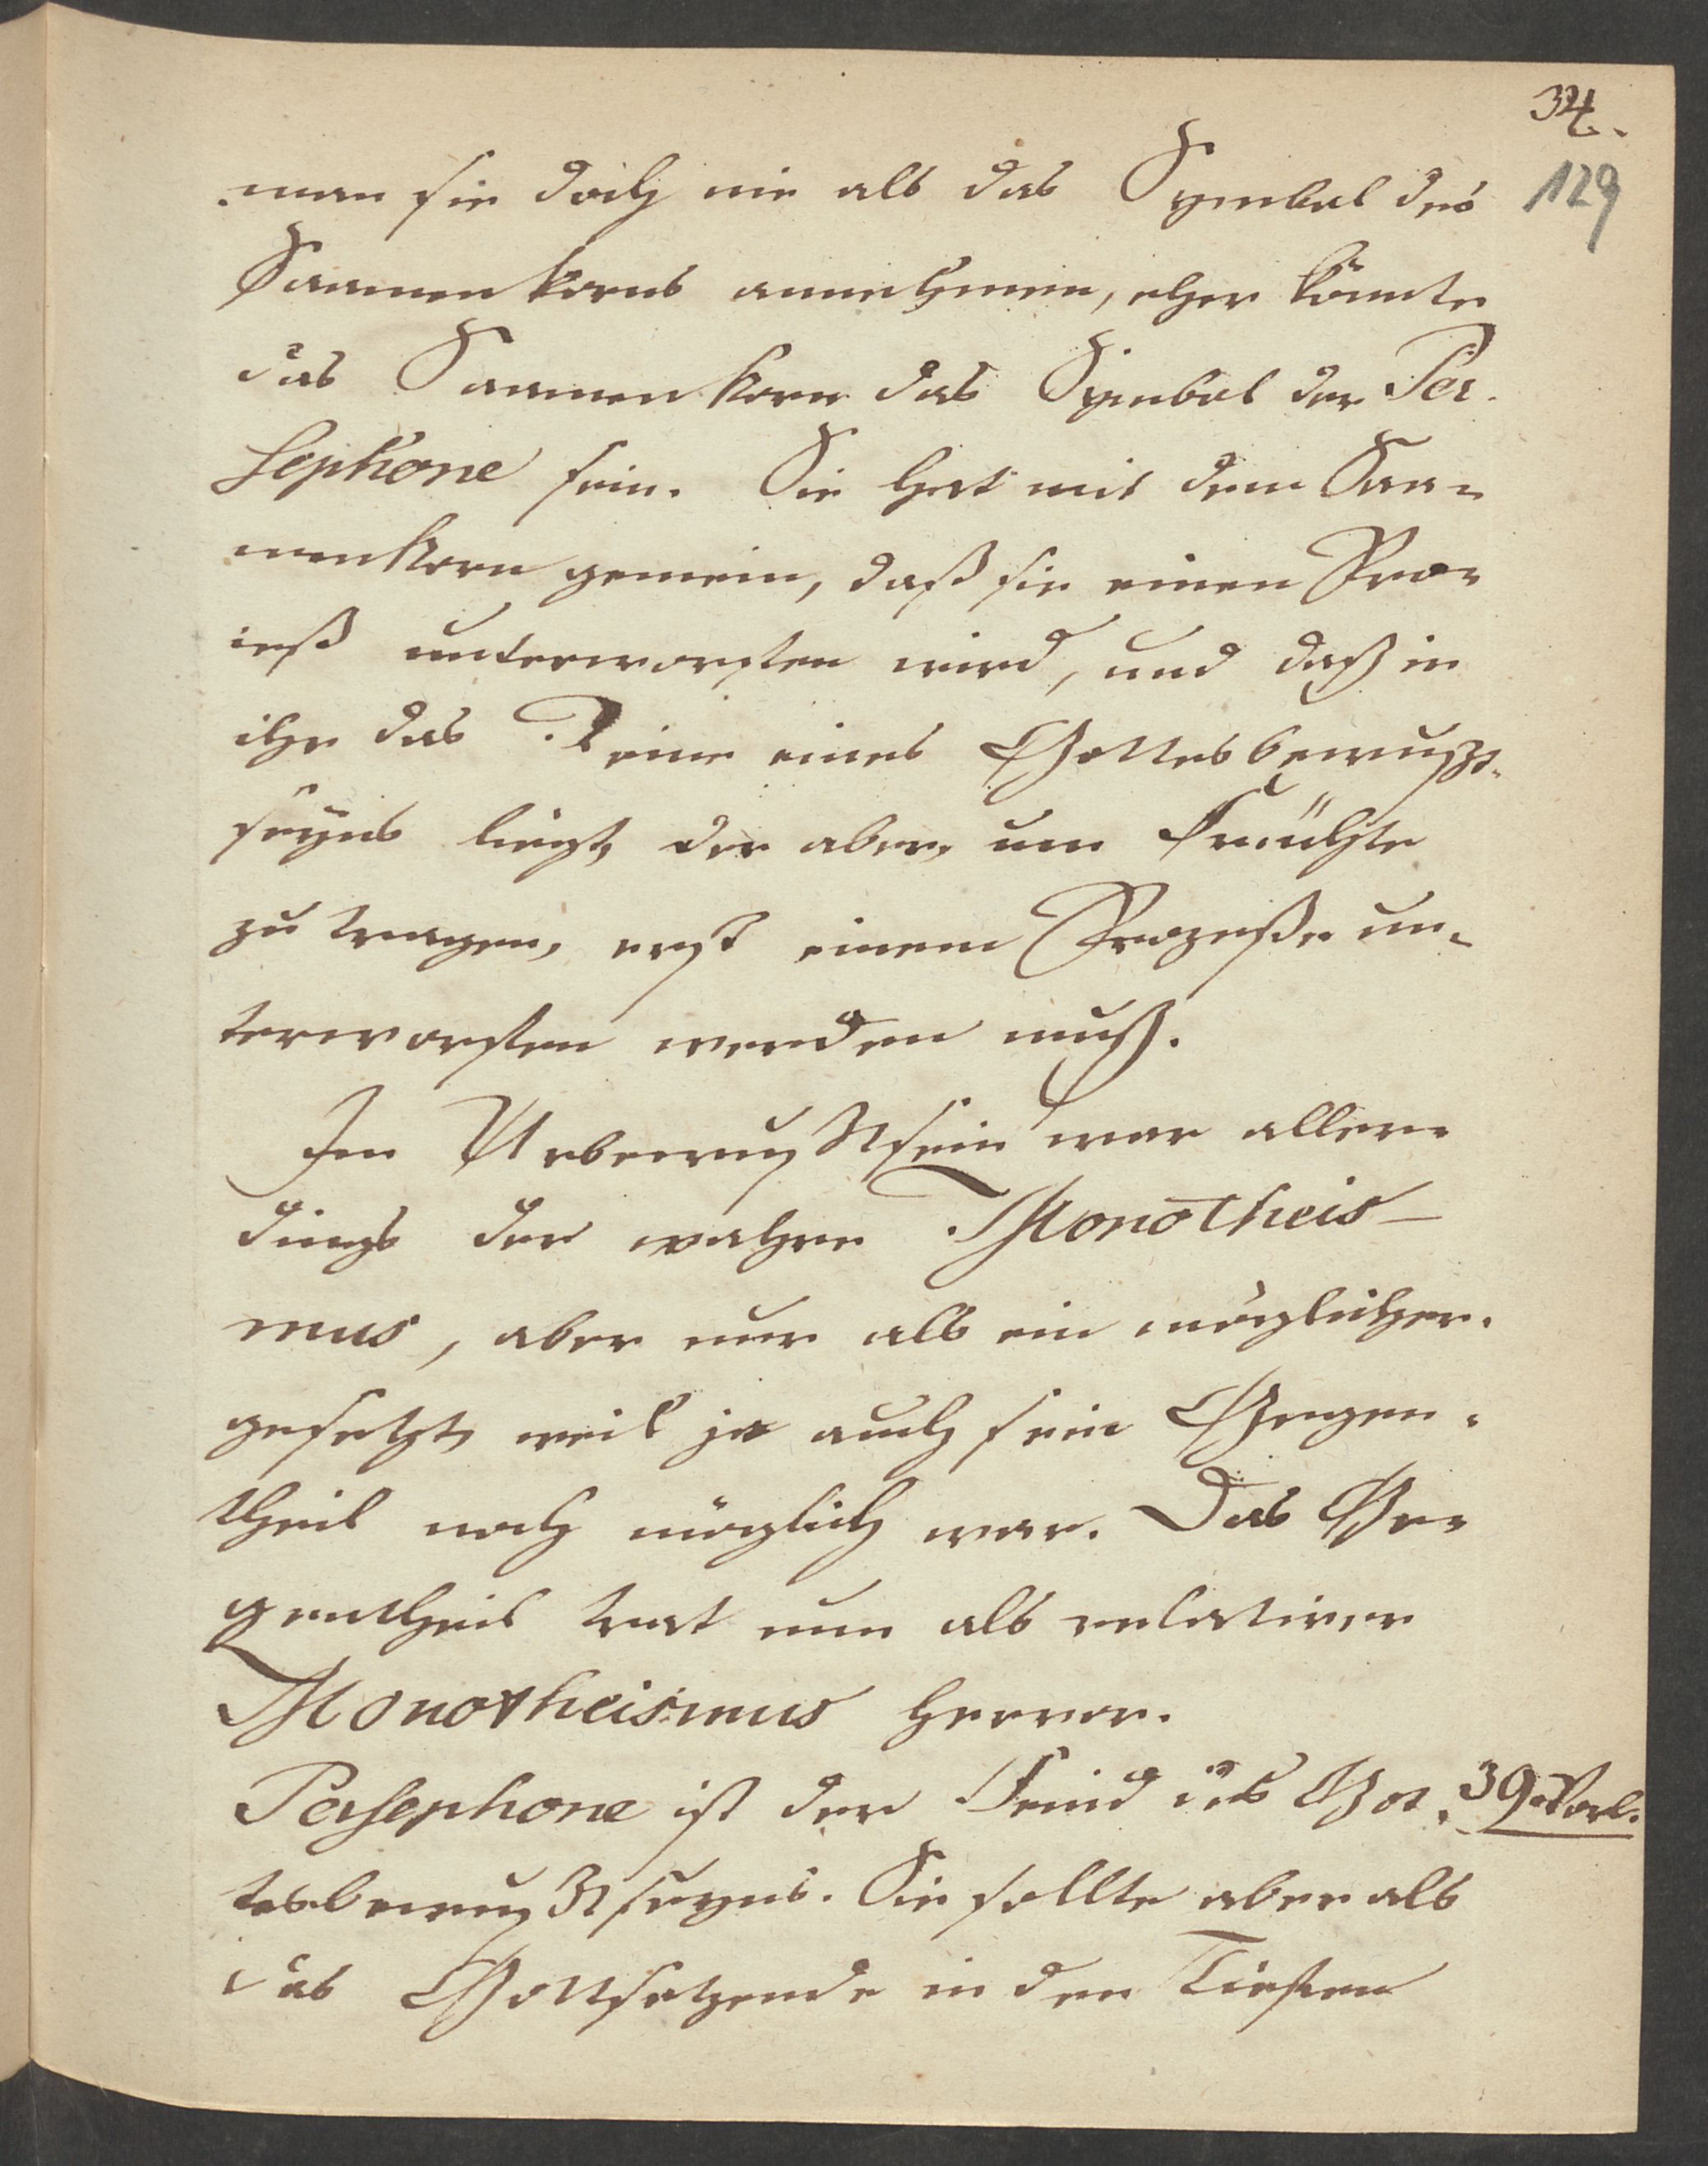 34.
129
man sie doch nie als das Symbol des
Saamenkorns annehmen, eher könnte
das Saamenkorn das Symbol der Per-
sephone sein. Sie hat mit dem Saa-
menkorn gemein, daß sie einen Pro-
ceß unterworfen wird, und daß in
ihr das Keime eines Gottesbewußt-
seyns liegt, der aber, um Früchte
zu tragen, erst einem Prozeße un-
terworfen werden muß.
Im Urbewußtsein war aller-
dings der wahre Monotheis-
mus, aber nur als ein möglicher
gesetzt, weil ja auch sein Gegen-
theil noch möglich war. Das Ge-
gentheil trat nun als relativer
Monotheismus hervor.
Persephone ist der Feind des Got- 39. Vorl.
tesbewußtseyns. Sie sollte aber als
das Gottsetzende in den Tiefen